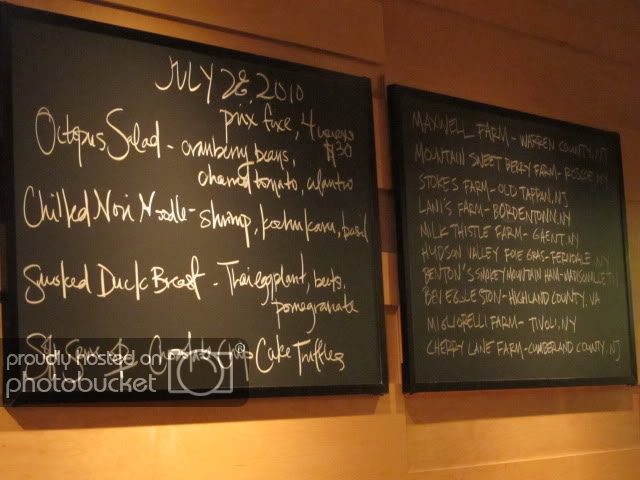 JULY 28 2010
prix fixe, 4 courses
$30
Octopus Salad - cranberry beans,
charred tomato, cilantro
Chilled Nori Noodle - shrimp, basil
Smoked Duck Breast - Thai eggplant, beets,
pomegranate
Cake Truffles
MAXWELL FARM - WARREN COUNTY, NJ
MOUNTAIN SWEET BERRY FARM - ROSCOE, NY
STOKES FARM - OLD TAPPAN, NJ
LANI'S FARM - BORDENTOWN, NY
MILK THISTLE FARM - GHENT, NY
HUDSON VALLEY FOIE GRAS - FERNDALE, NY
BENTON'S SMOKEY MOUNTAIN HAM - MADISONVILLE, TN
BEV EGGLESTON - HIGHLAND COUNTY, VA
MIGLIORELLI FARM - TIVOLI, NY
CHERRY LANE FARM - CUMBERLAND COUNTY, NJ
proudly hosted on
photobucket